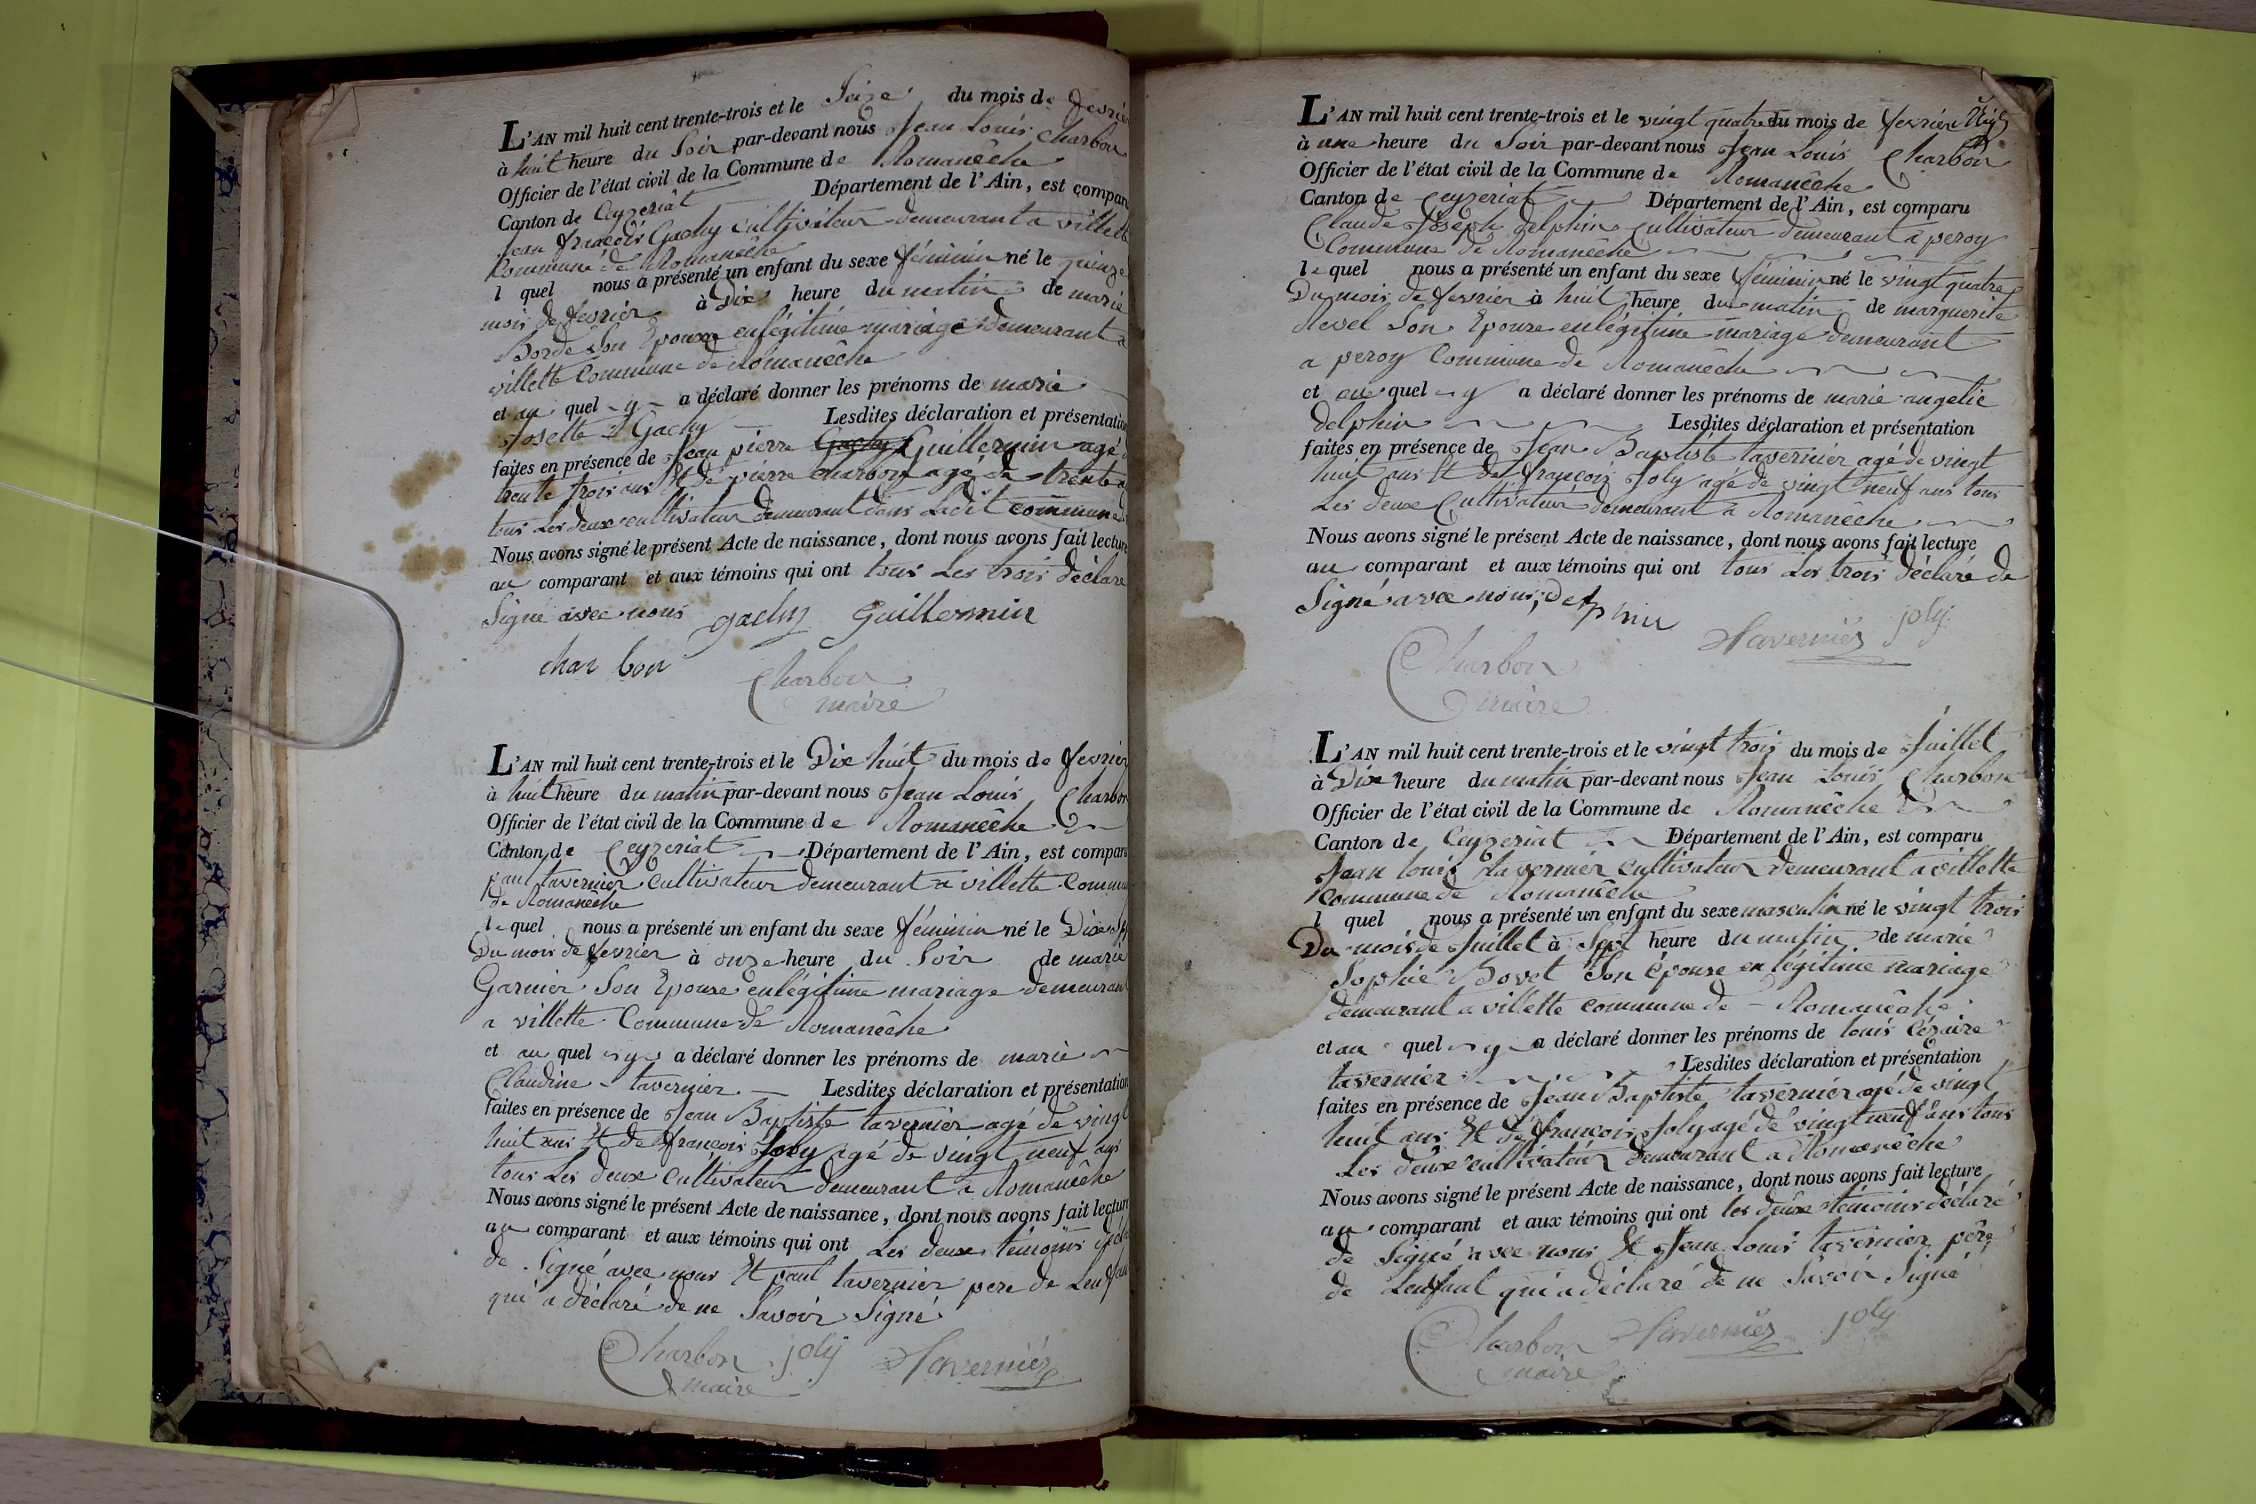 L'AN mil huit cent trente-trois et le Seize du mois de fevrier
à huit heure du Soir par-devant nous Jean Louis Charbon
Officier de l'état civil de la Commune de Romanêche
Canton de Ceyzeriat Département de l'Ain, est compar
Jean françois Gachy Cultivateur demeurant a villette
Commune de Romanêche
l quel nous a présenté un enfant du sexe féminin né le quinze
mois de fevrier à Dix heure du matin de marie
Borde Son Epouse en légitime mariage demeurant a
villette Commune de Romanêche
et au quel y a déclaré donner les prénoms de marie
Josette Gachy Lesdites déclaration et présentation
faites en présence de Jean pierre Gachy Guillermin agé d
trente trois ans Et de pierre Charbon agé de trente a
tous Les deux cultivateur demeurant dans Ladit commune
Nous avons signé le présent Acte de naissance, dont nous avons fait lecture
au comparant et aux témoins qui ont tous Les trois déclaré
Signé avec nous gachy Guillermin
charbon Charbon
maire
L'AN mil huit cent trente-trois et le Dix huit du mois de fevrier
à huit heure du matin par-devant nous Jean Louis Charbon
Officier de l'état civil de la Commune de Romanêche
Canton de Ceyzeriat Département de l'Ain, est compar
paul tavernier Cultivateur demeurant a villette Commu
de Romanêche
le quel nous a présenté un enfant du sexe féminin né le Dix
Du mois de fevrier à onze heure du Soir de marie
Garnier Son Epouse en légitime mariage demeuran
a villette Commune de Romanêche
et au quel y a déclaré donner les prénoms de marie
Claudine tavernier Lesdites déclaration et présentation
faites en présence de Jean Baptiste tavernier agé de vingt
huit ans Et de françois Joly agé de vingt neuf ans
tous Les deux cultivateur demeurant a Romanêche
Nous avons signé le présent Acte de naissance, dont nous avons fait lecture
au comparant et aux témoins qui ont Les deux témoins
de Signé avec nous Et paul tavernier pere de Lenfan
qui a déclaré de ne Savoir Signé
Charbon joly Tavernier
maire
L'AN mil huit cent trente-trois et le vingt quatre du mois de fevrier
à une heure du Soir par-devant nous Jean Louis Charbon
Officier de l'état civil de la Commune de Romanêche
Canton de Ceyzeriat Département de l'Ain, est comparu
Claude Joseph delphin Cultivateur demeurant a peroy
Commune de Romanêche
le quel nous a présenté un enfant du sexe féminin né le vingt quatre
Du mois de fevrier à huit heure du matin de marguerite
Revel Son Epouse en légitime mariage demeurant
a peroy Commune de Romanêche
et au quel y a déclaré donner les prénoms de marie angelie
delphin Lesdites déclaration et présentation
faites en présence de Jean Baptiste tavernier agé de vingt
huit ans Et de françois Joly agé de vingt neuf ans tous
Les deux Cultivateur demeurant a Romanêche
Nous avons signé le présent Acte de naissance, dont nous avons fait lecture
au comparant et aux témoins qui ont tous Les trois déclaré de
Signé avec nous, Delphin
Tavernier joly
Charbon
maire
L'AN mil huit cent trente-trois et le vingt trois du mois de Juillet
à Dix heure du matin par-devant nous Jean Louis Charbon
Officier de l'état civil de la Commune de Romanêche
Canton de Ceyzeriat Département de l'Ain, est comparu
Jean louis tavernier Cultivateur demeurant a villette
Commune de Romanêche
l quel nous a présenté un enfant du sexe masculin né le vingt trois
Du mois de Juillet à Sept heure du matin de marie
Sophie Bovet Son épouse en légitime mariage
demeurant a villette commune de Romanêche
et au quel y a déclaré donner les prénoms de louis Cézaire
tavernier Lesdites déclaration et présentation
faites en présence de Jean Baptiste tavernier agé de vingt
huit ans Et de françois Joly agé de vingt neuf ans tous
Les deux cultivateur demeurant a Romanêche
Nous avons signé le présent Acte de naissance, dont nous avons fait lecture
au comparant et aux témoins qui ont les deux témoins déclaré
de Signé avec nous Et Jean Louis tavernier père
de Lenfant qui a déclaré de ne Savoir Signé
Charbon Tavernier joly
maire